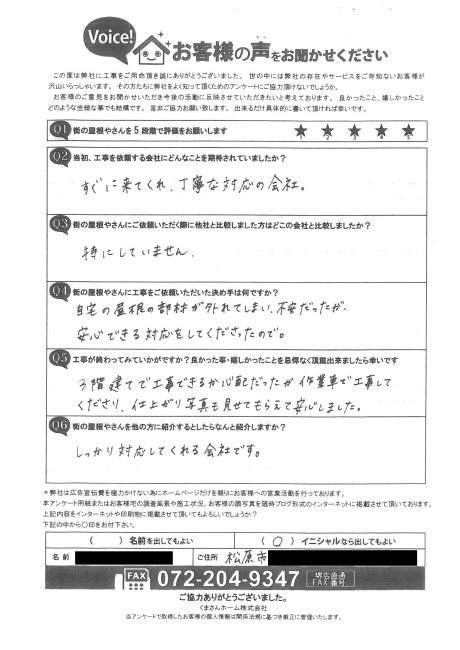 Voice!
お客様の声をお聞かせください
この度は弊社に工事をご用命頂き誠にありがとうございました。世の中には弊社の存在やサービスをご存知ないお客様が
沢山いらっしゃいます。その方たちに弊社をよく知って頂くためのアンケートにご協力頂けないでしょうか。
お客様のご意見をお聞かせいただき今後の活動に反映させていただきたいと考えております。良かったこと、嬉しかったこと
どのような些細な事でも結構です。是非ご協力お願い致します。出来るだけ具体的に書いて頂ければ幸いです。
Q1 街の屋根やさんを5段階で評価をお願いします ★1 ★2 ★3 ★4 ★5
Q2 当初、工事を依頼する会社にどんなことを期待されていましたか?
すぐに来てくれ、丁寧な対応の会社。
Q3 街の屋根やさんにご依頼いただく際に他社と比較しました方はどこの会社と比較しましたか?
特にしていません、
Q4 街の屋根やさんに工事をご依頼いただいた決め手は何ですか?
自宅の屋根の部材が外れてしまい、不安だったが、
安心できる対応をしてくださったので。
Q5 工事が終わってみていかがですか?良かった事・嬉しかったことを忌憚なく頂戴出来ましたら幸いです
3階建てで工事できるか心配だったが作業車で工事して
くださり、仕上がり写真も見せてもらえて安心しました。
Q6 街の屋根やさんを他の方に紹介するとしたらなんと紹介しますか?
しっかり対応してくれる会社です。
*弊社は広告宣伝費を極力かけない為にホームページだけを頼りにお客様への営業活動を行っております。
本アンケート用紙またはお客様宅の調査風景や施工状況、お客様の顔写真を随時ブログ形式のインターネットに掲載させて頂いております。
上記内容をインターネットや印刷物に掲載させて頂いてもよろしいでしょうか?
下記の中から○印をお付下さい。
( ) 名前を出してもよい ( ○ ) イニシャルなら出してもよい
名前 ご住所 松原市
FAX 072-204-9347 堺店直通 FAX番号
ご協力ありがとうございました。
くまさんホーム株式会社
当アンケートで取得したお客様の個人情報は関係法規に基づき厳正に管理いたします。